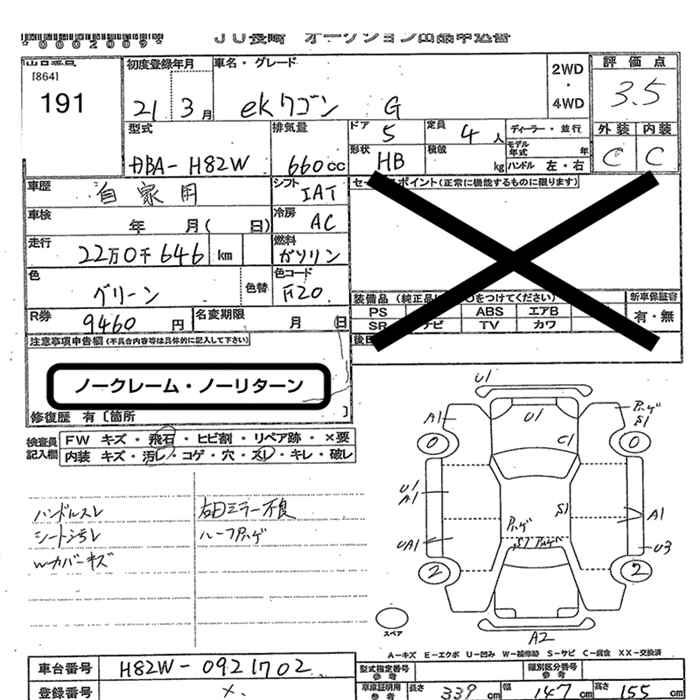 *0002009*
JU長崎 オークション出品申込書
出品番号
[864]
191
初度登録年月
21 3月
車名・グレード
ekワゴン G
2WD
・
4WD
評価点
3.5
型式
DBA-H82W
排気量
660cc
ドア
5
定員
4人
ディーラー・並行
モデル年式 年
外装 内装
C C
形状
HB
積載
kg
ハンドル 左・右
車歴
自家用
シフト
IAT
車検
年 月( 日)
冷房
AC
走行
22万0千646 km
燃料
ガソリン
色
グリーン
色替
色コード
F20
R券
9460円
名変期限
月 日
装備品
(正常に機能するものに限ります)
PS ABS エアB
SR ナビ TV カワ
新車保証書
有・無
注意事項申告欄(不具合内容等は具体的に記入して下さい)
ノークレーム・ノーリターン
修復歴 有〔箇所 〕
検査員記入欄
FW キズ・飛石・ヒビ割・リペア跡・×要
内装 キズ・汚レ・コゲ・穴・スレ・キレ・破レ
ハンドルスレ
シート汚レ
Wカバーキズ
右田ミラー不良
ルーフアンゲ
U1
A1
U1
アンゲ
S1
0
0
C1
U1
A1
S1
A1
アンゲ
UA1
S1 アンゲ
U3
2
2
スペア
A2
A-キズ E-エクボ U-凹み W-補修跡 S-サビ C-腐食 XX-交換済
車台番号
H82W-0921702
登録番号
×
型式指定番号
参考
類別区分番号
参考
車庫証明用
参考
長さ 339cm
幅 147cm
高さ 155cm